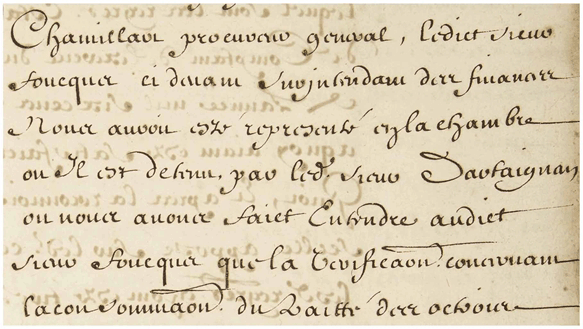 Chamillart procureur general, ledict sieur
foucquet ci devant surintendant des finances
Nous avoir esté representé en la chambre
ou Il est detenu, par led. sieur Dartaignan,
ou nous avons faict Entendre audict
sieur foucquet que la verificaon. concernant
la consommaon. du traitté des octrois